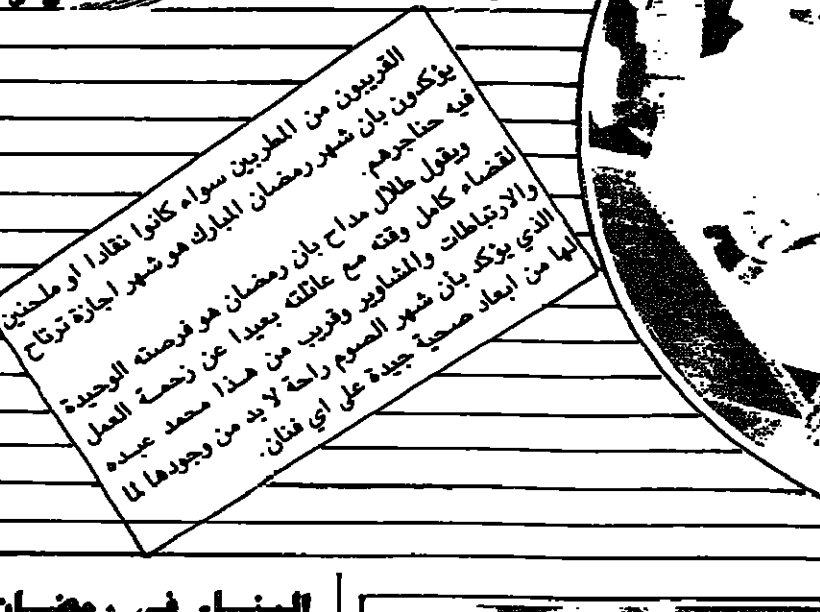 القريبون من المطربين سواء كانوا نقادا او ملحنين
يؤكدون بان شهر رمضان المبارك هو شهر اجازة ترتاح
فيه حناجرهم.
ويقول طلال مداح بان رمضان هو فرصته الوحيدة
لقضاء كامل وقته مع عائلته بعيدا عن زحمة العمل
والارتباطات والمشاوير وقريب من هذا محمد عبده
الذي يؤكد بأن شهر الصوم راحة لا بد من وجودها لما
لها من ابعاد صحية جيدة على اي فنان.
في رمضان